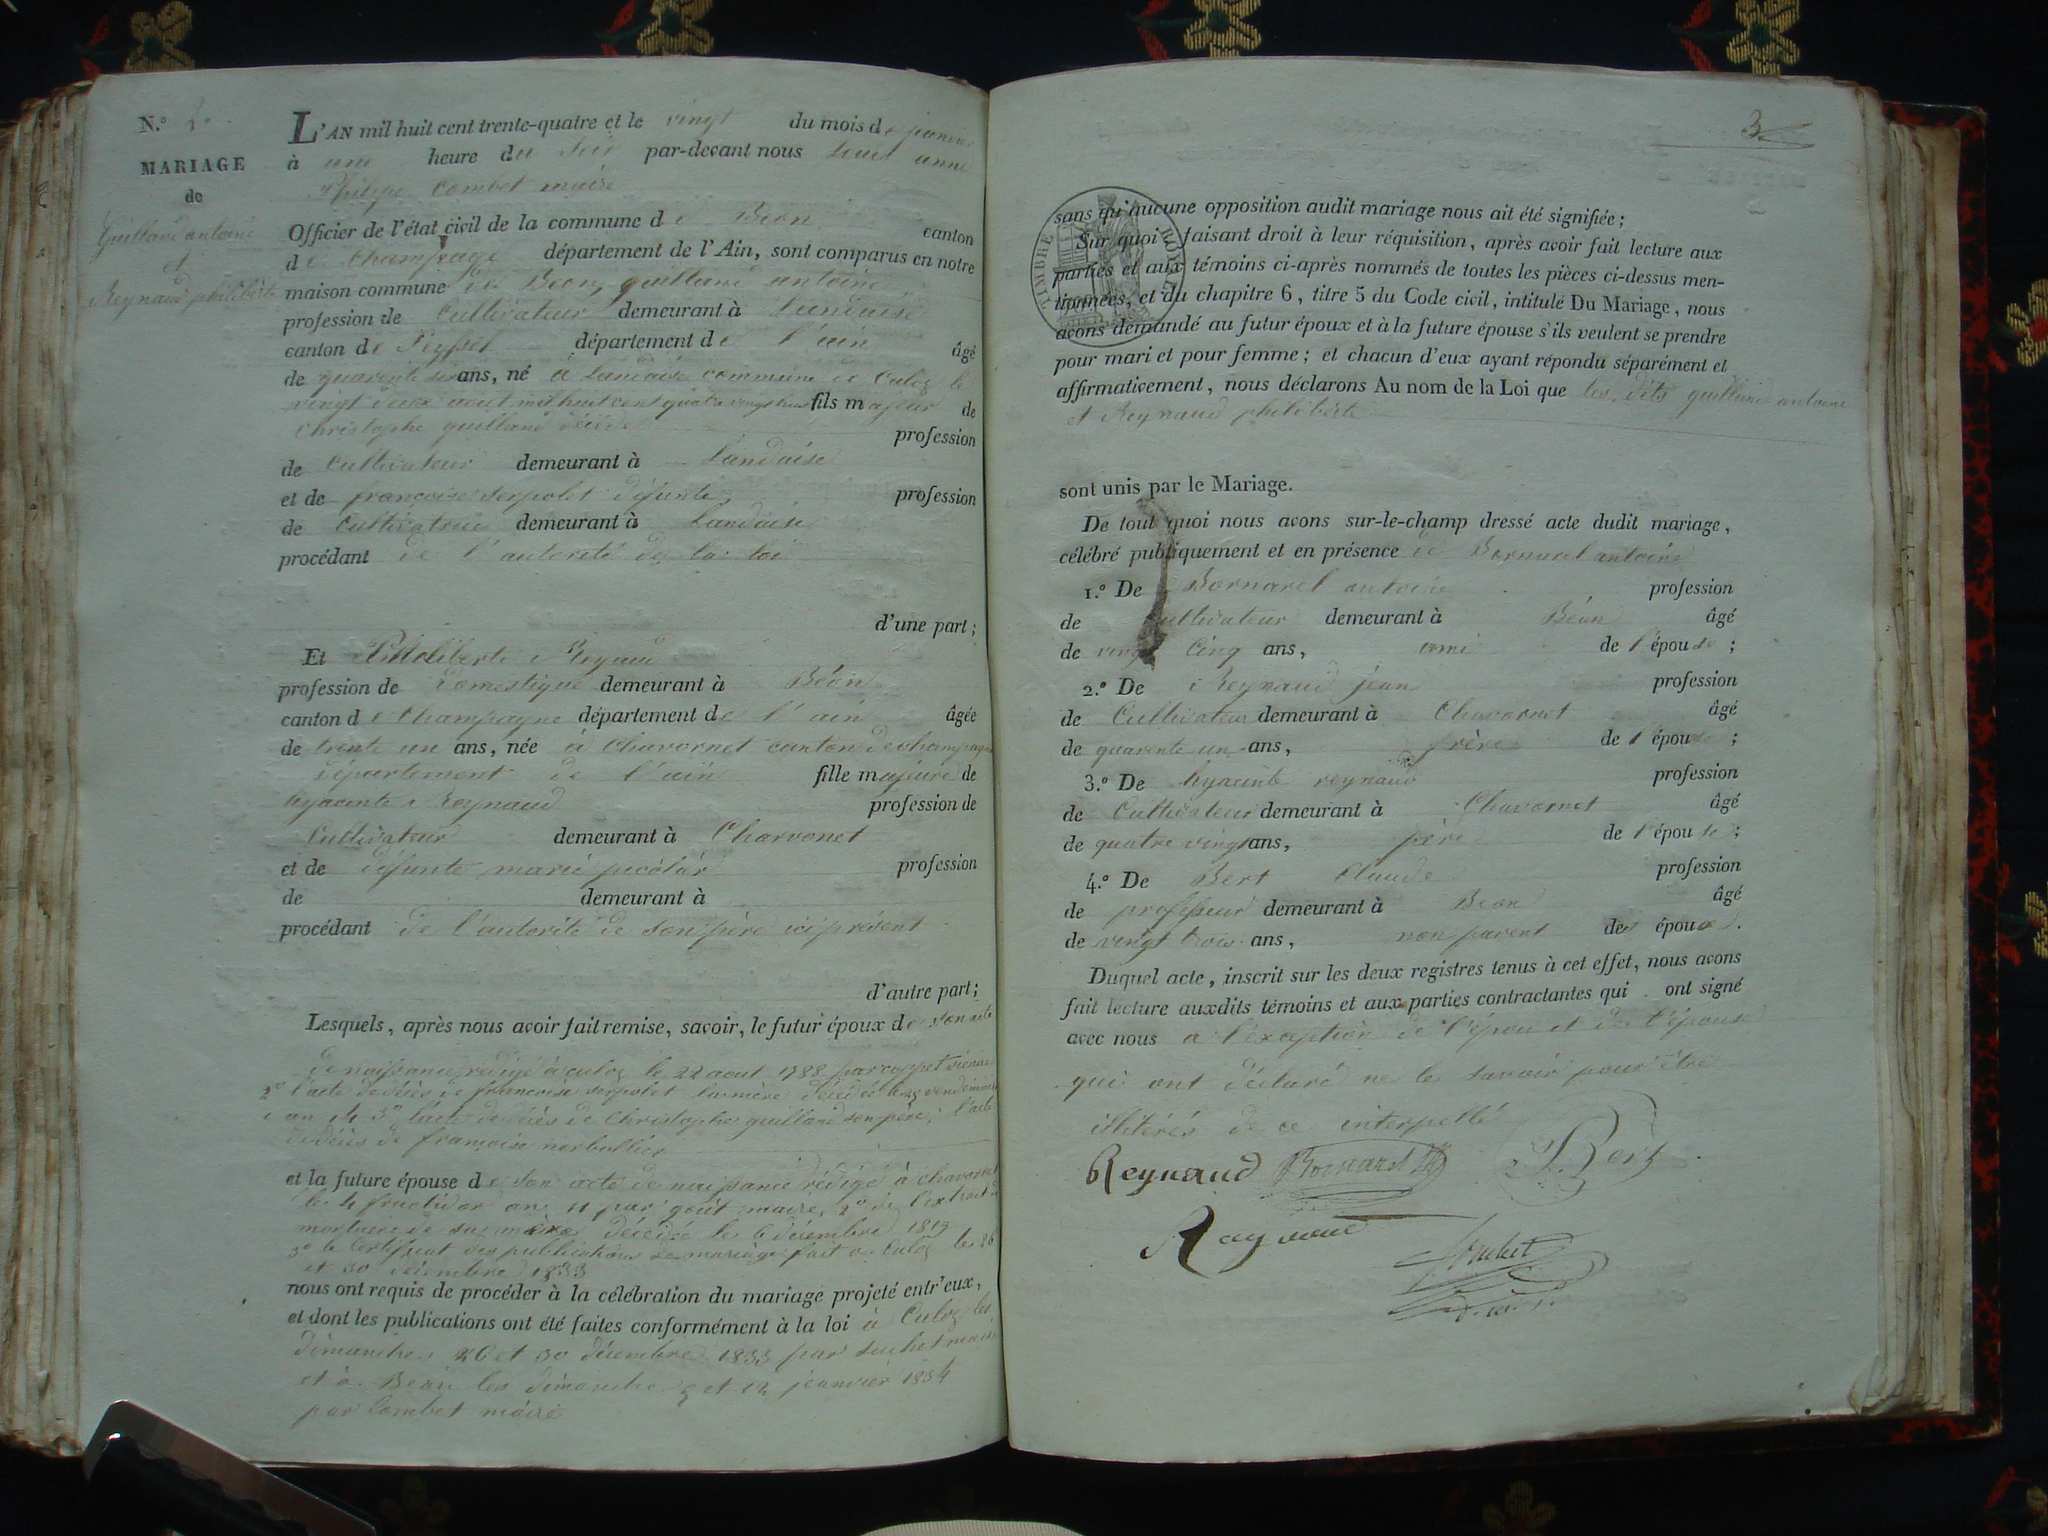 N.º 2.
MARIAGE
de
Guilland antoine
et
Reynaud philiberte
L'AN mil huit cent trente-quatre et le vingt du mois de janvier
à une heure du soir par-devant nous anne
Philippe Combet maire
Officier de l'état civil de la commune de Béon canton
de Champagne département de l'Ain, sont comparus en notre
maison commune de Béon, guilland antoine
profession de Cultivateur demeurant à Landaise
canton de Seyssel département de l'ain âgé
de quarente ans, né à Landaise commune de Culoz le
vingt deux aout mil huit cent quatre vingt huit fils majeur de
christophe guilland profession
de Cultivateur demeurant à Landaise
et de françoise serpolet défunte, profession
de Cultivatrice demeurant à Landaise
procédant de l'autorité de la loi
d'une part;
Et Philiberte Reynaud
profession de Domestique demeurant à Béon
canton de Champagne département de l'ain âgée
de trente un ans, née à Chavornet canton de champagne
département de l'ain fille majeure de
hyacinte Reynaud profession de
Cultivateur demeurant à Charvonet
et de défunte marie profession
de demeurant à
procédant de l'autorité de son père ici présent
d'autre part;
Lesquels, après nous avoir fait remise, savoir, le futur époux de son acte
de naissance rédigé à culoz le 22 aout 1788 par
2º l'acte de décès de francoise serpolet sa mère décédée
an 3º l'acte de décès de Christophe guilland son père, l'acte
de décès de françoise
et la future épouse de son acte de naissance rédigé à chavornet
le 4 fructidor an 11 par goût maire, 2º de l'extrait
mortuaire de sa mère décédée le 6 décembre 1819
3º le Certificat des publications de mariage fait à Culoz les 26
et 30 décembre 1833
nous ont requis de procéder à la célébration du mariage projeté entr'eux,
et dont les publications ont été faites conformément à la loi à Culoz les
dimanches 26 et 30 décembre 1833 par suchet maire
et à Béon les dimanches 5 et 12 janvier 1834
par Combet maire
3
TIMBRE ROYAL
sans qu'aucune opposition audit mariage nous ait été signifiée;
Sur quoi faisant droit à leur réquisition, après avoir fait lecture aux
parties et aux témoins ci-après nommés de toutes les pièces ci-dessus men-
tionnées, et du chapitre 6, titre 5 du Code civil, intitulé Du Mariage, nous
avons demandé au futur époux et à la future épouse s'ils veulent se prendre
pour mari et pour femme; et chacun d'eux ayant répondu séparément et
affirmativement, nous déclarons Au nom de la Loi que les dits guilland antoine
et Reynaud philiberte
sont unis par le Mariage.
De tout quoi nous avons sur-le-champ dressé acte dudit mariage,
célébré publiquement et en présence de Bornarel antoine
1.º De Bornarel antoine profession
de Cultivateur demeurant à Béon âgé
de vingt Cinq ans, ami de l'épouse;
2.º De Reynaud jean profession
de Cultivateur demeurant à Chavornet âgé
de quarente un ans, frère de l'épouse;
3.º De hyacinte reynaud profession
de Cultivateur demeurant à Chavornet âgé
de quatre vingt ans, père de l'épouse;
4.º De Bert Claude profession
de professeur demeurant à Beon âgé
de vingt trois ans, non parent des époux.
Duquel acte, inscrit sur les deux registres tenus à cet effet, nous avons
fait lecture auxdits témoins et aux parties contractantes qui ont signé
avec nous a l'exception de l'époux et de l'épouse
qui ont déclaré ne le savoir pour être
illitérés de ce interpellé
Reynaud Bornarel Bert
Raynaud